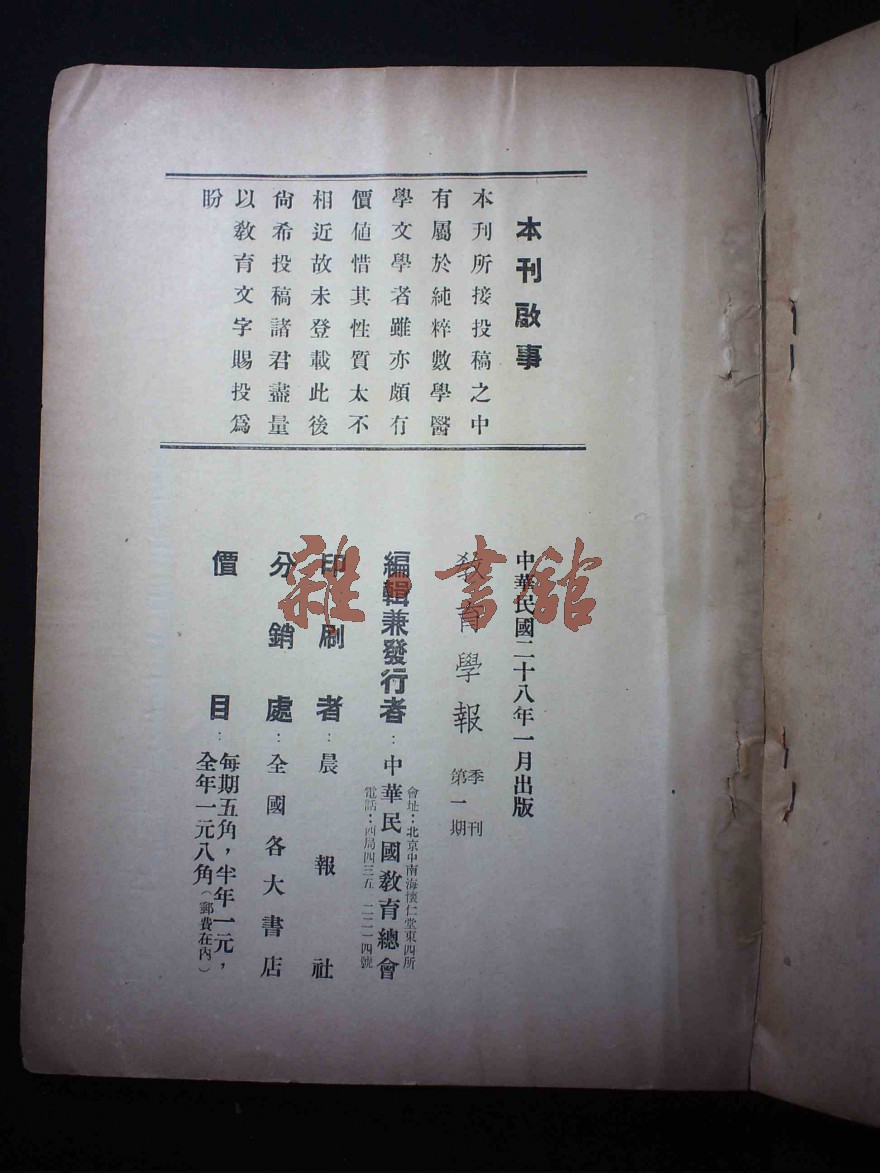 本刊啟事
本刊所接投稿之中
有屬於純粹數學醫
學文學者雖亦頗有
價値惜其性質太不
相近故未登載此後
尙希投稿諸君盡量
以敎育文字賜投爲
盼
中華民國二十八年一月出版
敎育學報 季刊 第一期
編輯兼發行者：中華民國敎育總會
會址：北京中南海懷仁堂東四所
電話：西局四三五 二二一四號
印刷者：晨報社
分銷處：全國各大書店
價目：每期五角，半年一元，
全年一元八角（郵費在內）
雜·書館